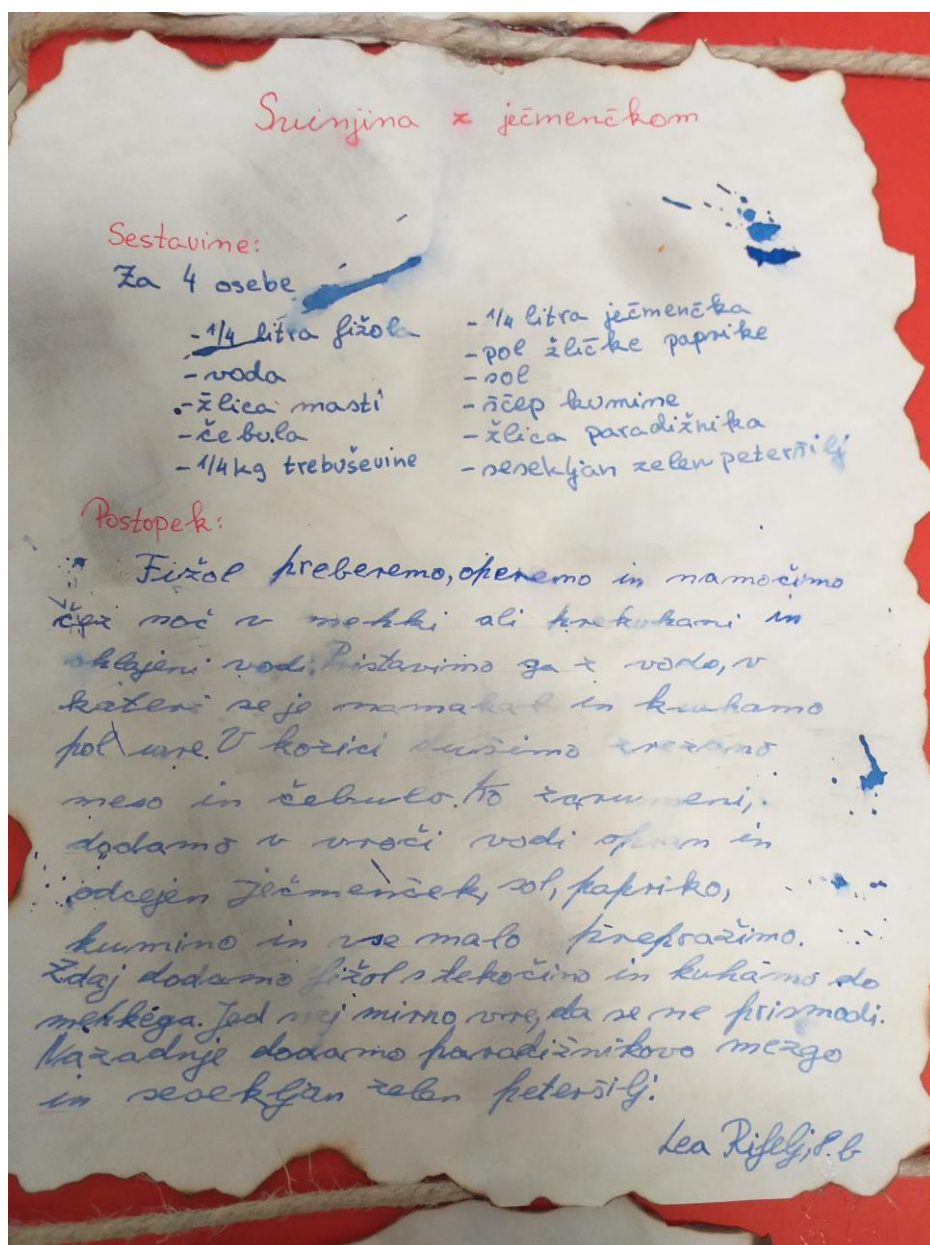 Svinjina z ječmenčkom
Sestavine:
Za 4 osebe
- 1/4 litra fižola
- voda
- žlica masti
- čebula
- 1/4 kg trebuševine
- 1/4 litra ječmenčka
- pol žličke paprike
- sol
- ščep kumine
- žlica paradižnika
- sesekljan zelen peteršilj
Postopek:
Fižol preberemo, operemo in namočimo
čez noč v mehki ali prekuhani in
ohlajeni vodi. Pristavimo ga z vodo, v
kateri se je namakal in kuhamo
pol ure. V kozici dušimo zrezano
meso in čebulo. Ko zarumeni,
dodamo v vroči vodi opran in
odcejen ječmenček, sol, papriko,
kumino in vse malo prepražimo.
Zdaj dodamo fižol s tekočino in kuhamo do
mehkega. Jed naj mirno vre, da se ne prismodi.
Nazadnje dodamo paradižnikovo mezgo
in sesekljan zelen peteršilj.
Lea Rifelj, 8. b